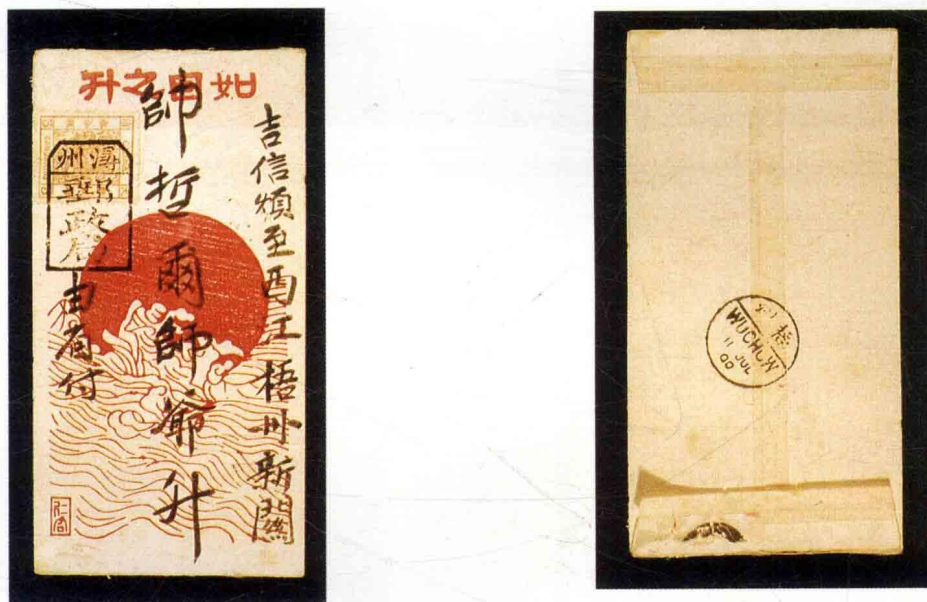 如日之升
吉信煩至西江梧州新關
師哲爾師爺升
由省付
潯州
郵政局
仁宕
梧州
WUCHOW
11 JUL
00